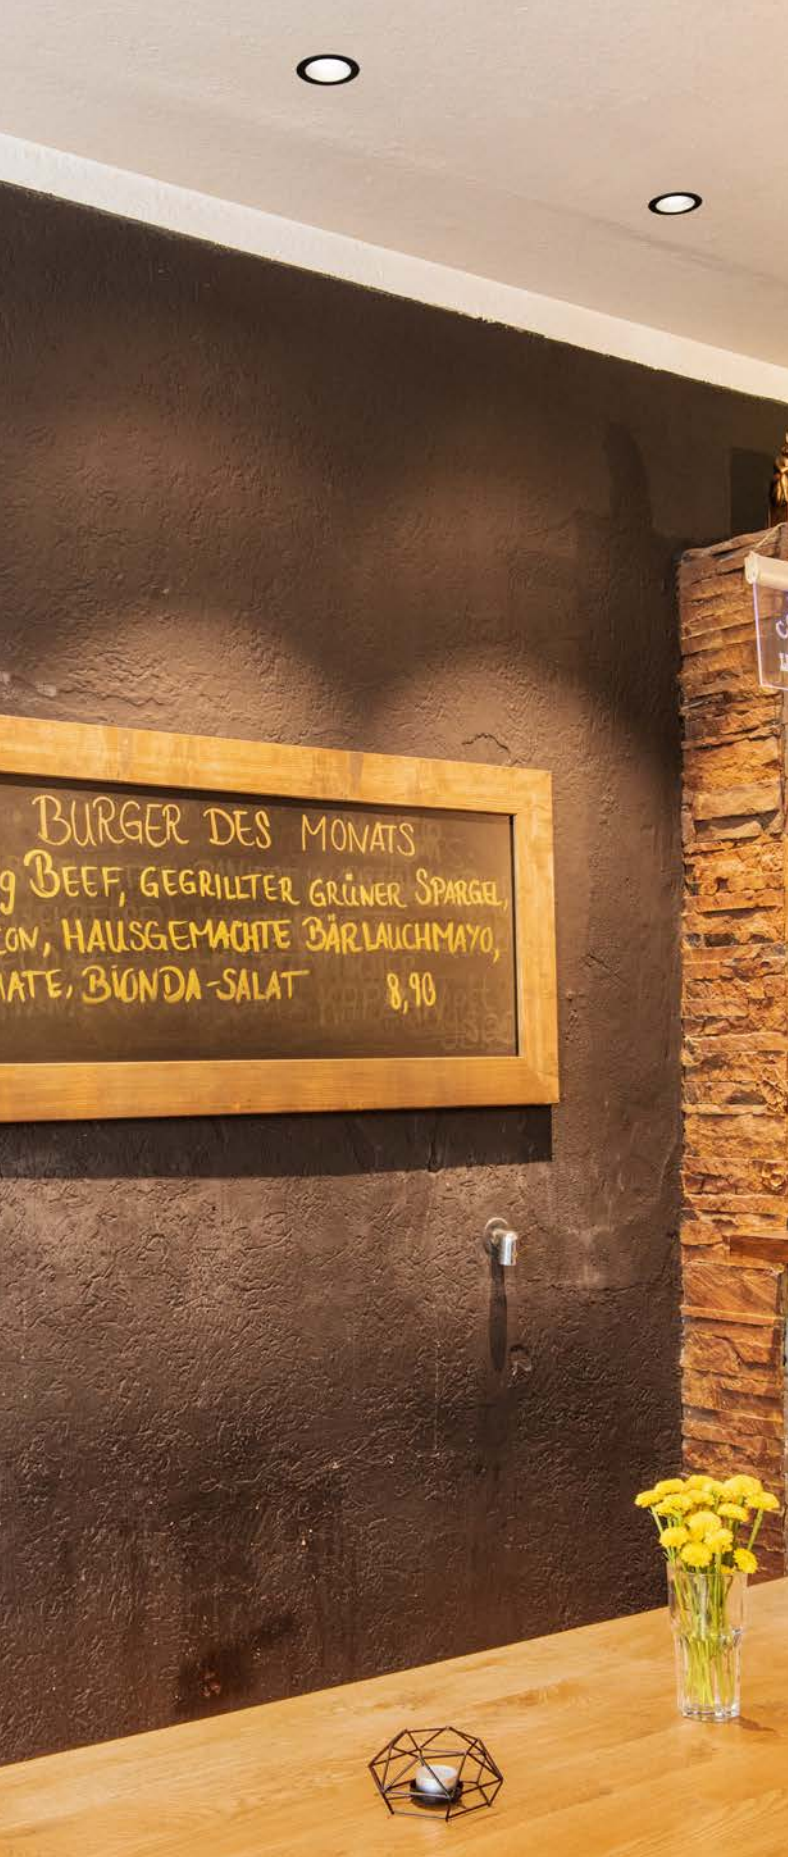 BURGER DES MONATS
g BEEF, GEGRILLTER GRÜNER SPARGEL,
HAUSGEMACHTE BÄRLAUCHMAYO,
BIONDA-SALAT 8,90